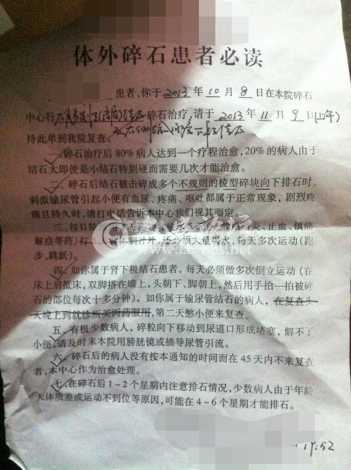 体外碎石患者必读
患者,你于2013年10月8日在本院碎石
中心行 碎石治疗,请于2013年11月9日(上午)
持此单到我院复查。
一、碎石治疗后80%病人达到一个疗程治愈,20%的病人由于
结石大即使是小结石特别硬而需要几次才能治愈。
二、碎石后结石被击碎成多个不规则的棱型碎块向下排石时,
刺激输尿管引起小便有血尿、疼痛、呕吐都属于正常现象,剧烈疼
痛且持久时,请打电话告诉本中心我们便再商定。
三、每日 炎、止血、镇痛
解痉等药) 外,还必须大量喝水,每天多次运动(跑
步、跳跃)。
四、如你属于肾下极结石患者,每天必须做多次倒立运动(在
床上趴脸床,双脚搭在墙上,头朝下、脚朝上,然后用手拍一拍被碎
石的部位每次十多分钟)。如你属于输尿管结石的病人,在复查头一
天晚上到就诊所买泻药服用,第二天憋小便来复查。
五、有极少数病人,碎粒向下移动到尿道口形成堵塞,解不了
小便,请及时来本院用膀胱镜或插导尿管引流。
六、碎石后的病人没有按本通知的时间而在45天内不来复查
者,本中心作为治愈处理。
七、在碎石后1-2个星期内注意排石情况,少数病人由于年龄
大体质差或运动不到位等原因,可能在4-6个星期才能排石。
17:52